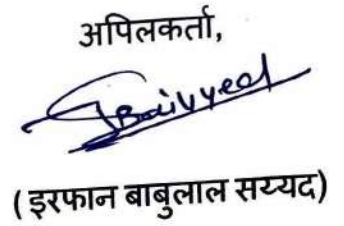 अपिलकर्ता,
( इरफान बाबुलाल सय्यद)